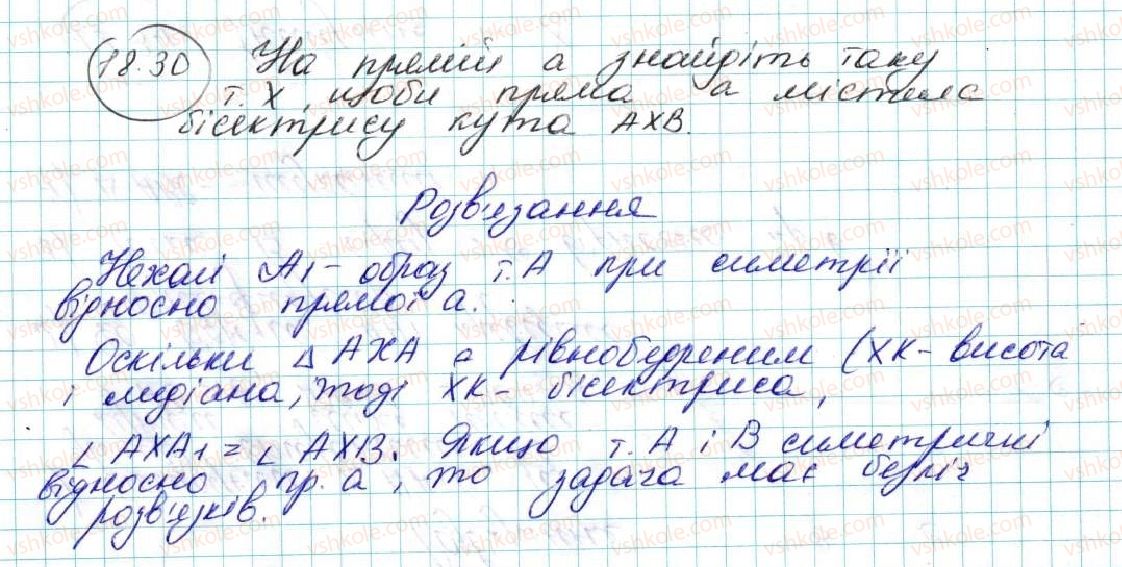 18.30 На прямій а знайдіть таку
т. X, щоби пряма а містила
бісектрису кута AXB.
Розв'язання
Нехай A1 - образ т. A при симетрії
відносно прямої а.
Оскільки △ AXA є рівнобедреним (XK - висота
і медіана, тоді XK - бісектриса,
∠ AXA1 = ∠ AXB. Якщо т. A і B симетричні
відносно пр. а, то задача має безліч
розв'язків.